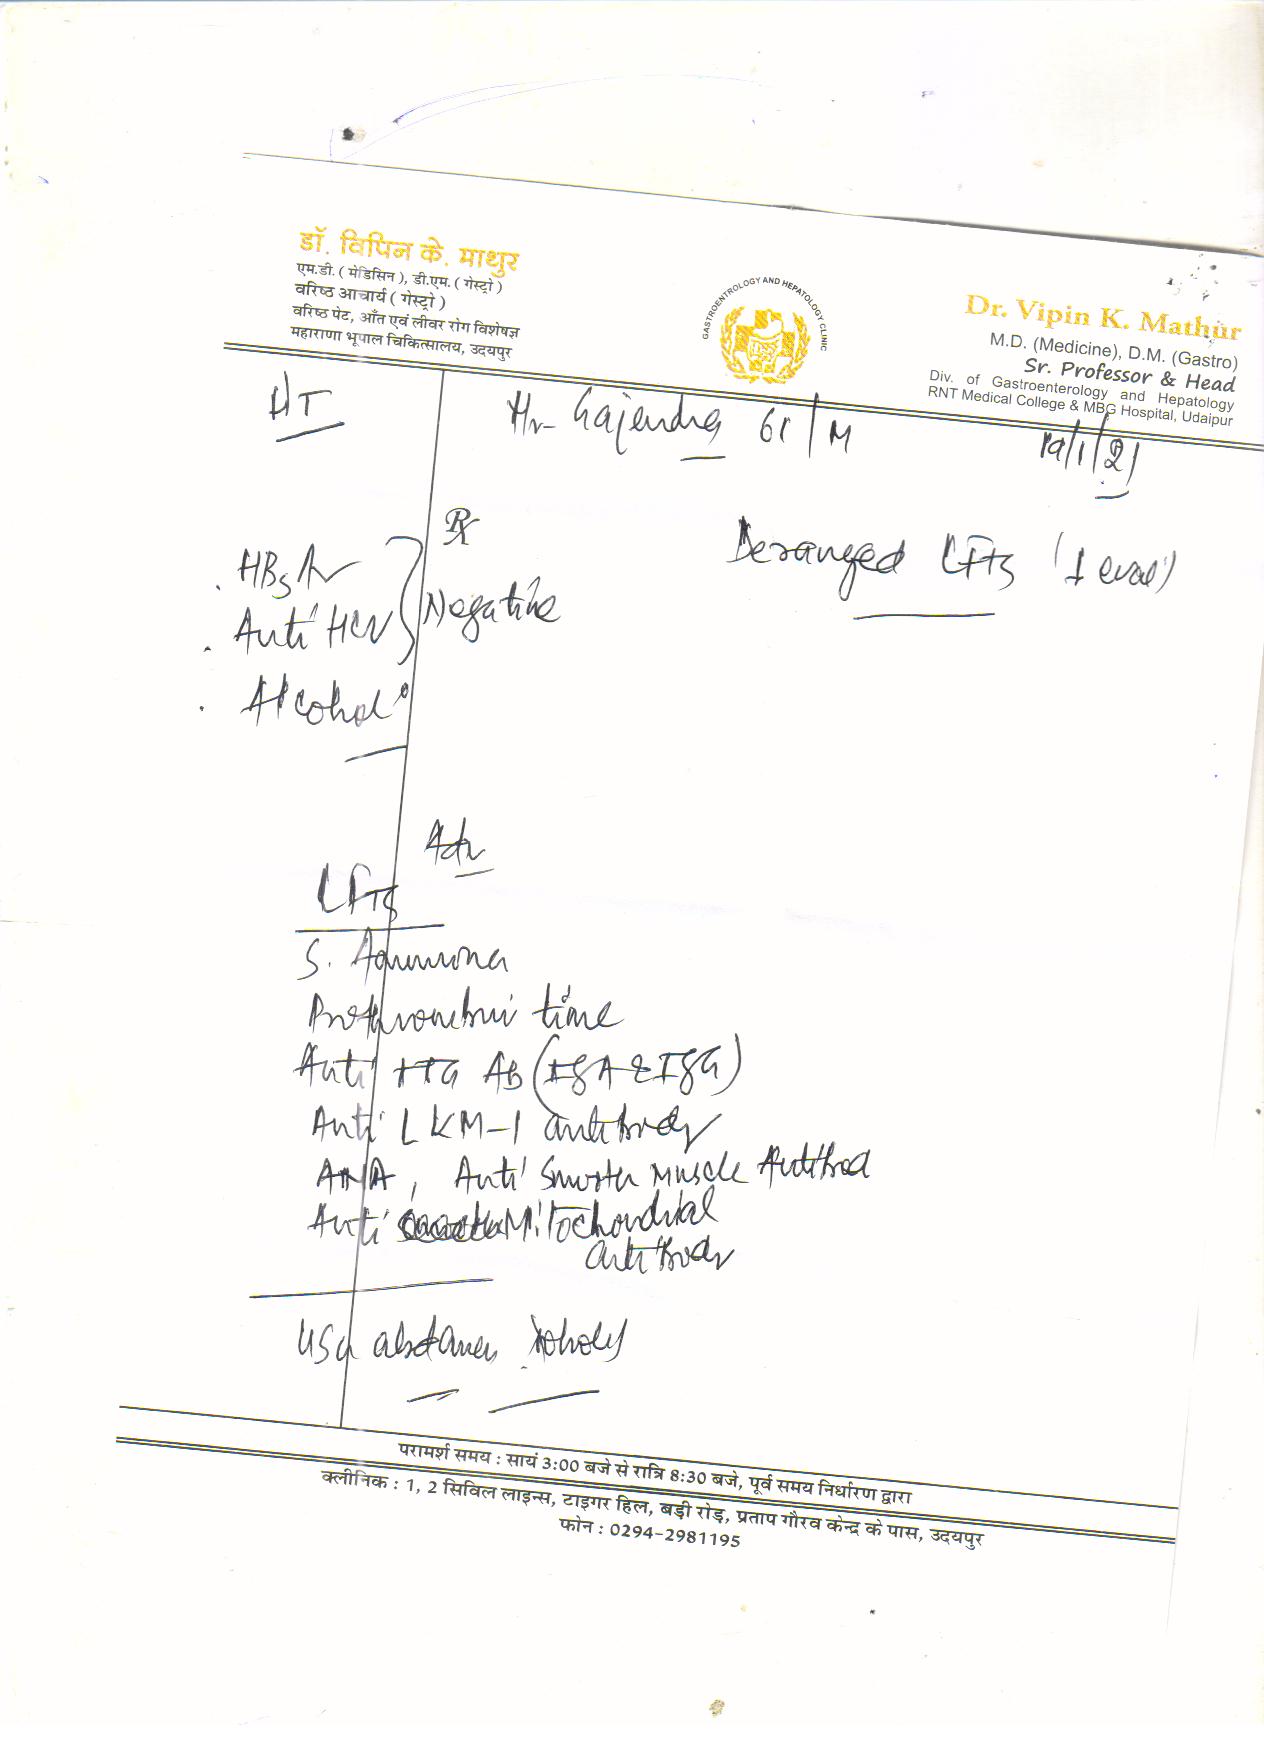 डॉ. विपिन के. माथुर
एम.डी. ( मेडिसिन ), डी.एम. ( गेस्ट्रो )
वरिष्ठ आचार्य ( गेस्ट्रो )
वरिष्ठ पेट, आँत एवं लीवर रोग विशेषज्ञ
महाराणा भूपाल चिकित्सालय, उदयपुर
GASTROENTROLOGY AND HEPATOLOGY CLINIC
Dr. Vipin K. Mathur
M.D. (Medicine), D.M. (Gastro)
Sr. Professor & Head
Div. of Gastroenterology and Hepatology
RNT Medical College & MBG Hospital, Udaipur
HT
Gajendra /M
/1/21
Rx
Deranged LFTs
HBsAg
Anti HCV
Negative
Alcohol
Adv
LFTs
S. Ammonia
Prothrombin time
Anti tTG AB (IgA & IgG)
Anti LKM-1 antibody
ANA, Anti Smooth Muscle Antibod
Anti Mitochondrial
antibody
USG abdomen
परामर्श समय : सायं 3:00 बजे से रात्रि 8:30 बजे, पूर्व समय निर्धारण द्वारा
क्लीनिक : 1, 2 सिविल लाइन्स, टाइगर हिल, बड़ी रोड़, प्रताप गौरव केन्द्र के पास, उदयपुर
फोन : 0294-2981195